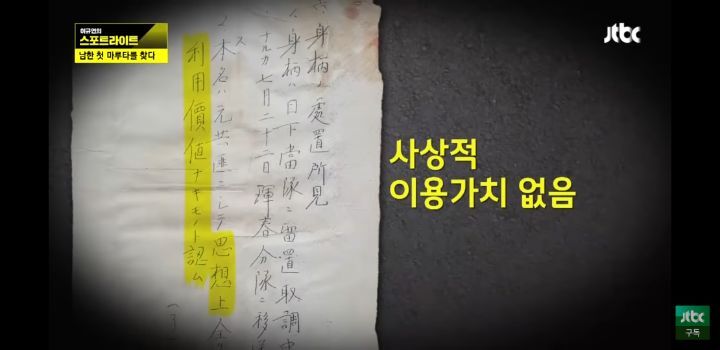 이규연의
스포트라이트
남한 첫 마루타를 찾다
jtbc
六、身柄ノ處置所見
身柄ハ目下當隊ニ留置取調中
七月二十二日琿春分隊ニ移
本名ハ元共進ニシテ思想上全
利用價値ナキモノト認ム
사상적
이용가치 없음
jtbc
구독